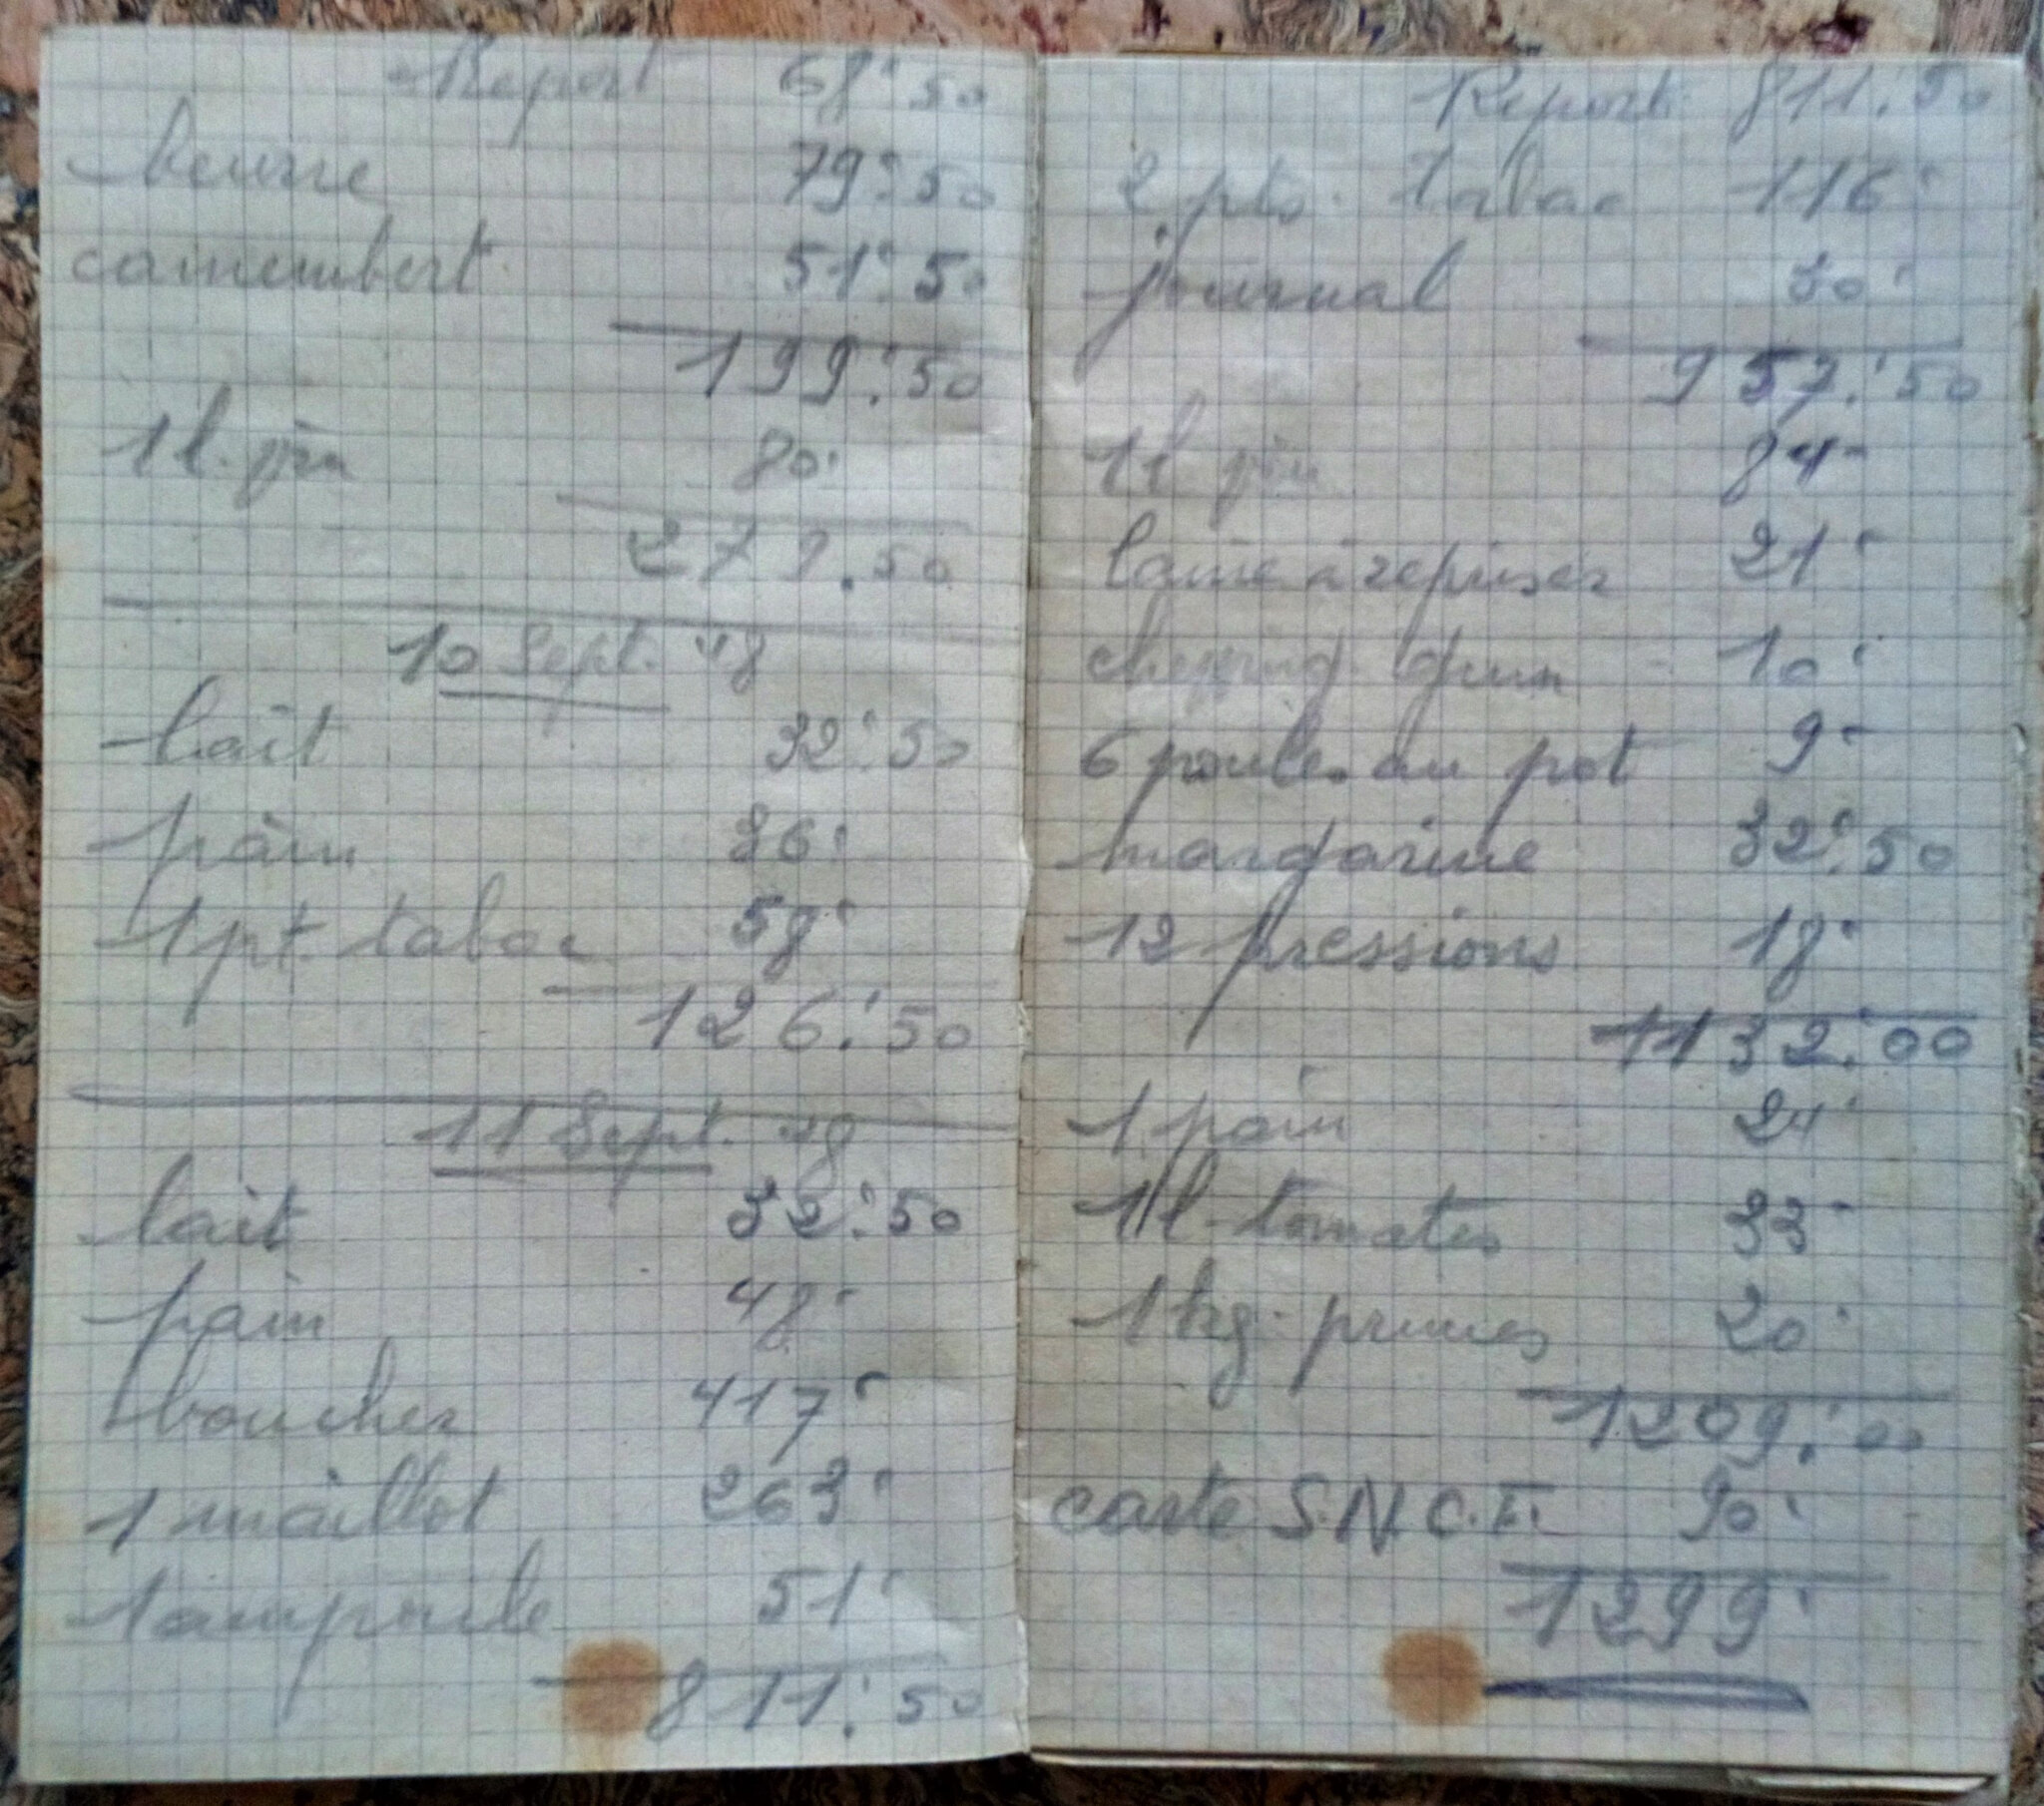 Report 68.'50
beurre 79.'50
camembert 51.'50
199.'50
1 l. 80'
279.50
10 Sept. 48
lait 32.'50
pain 36'
1 pt. tabac 58'
126.'50
11 Sept. 48
lait 32.'50
pain 48'
boucher 417'
1 maillot 263'
1 ampoule 51'
811.'50
Report 811.'50
2 pts. tabac 116'
journal 30'
957.'50
1 l. 84'
laine à repriser 21'
chewing gum 10'
6 poules au pot 9'
margarine 32.'50
12 pressions 18'
1132.'00
1 pain 24'
1 l tomates 33'
1 kg. prunes 20'
1209.'00
carte S.N.C.F. 90'
1299'